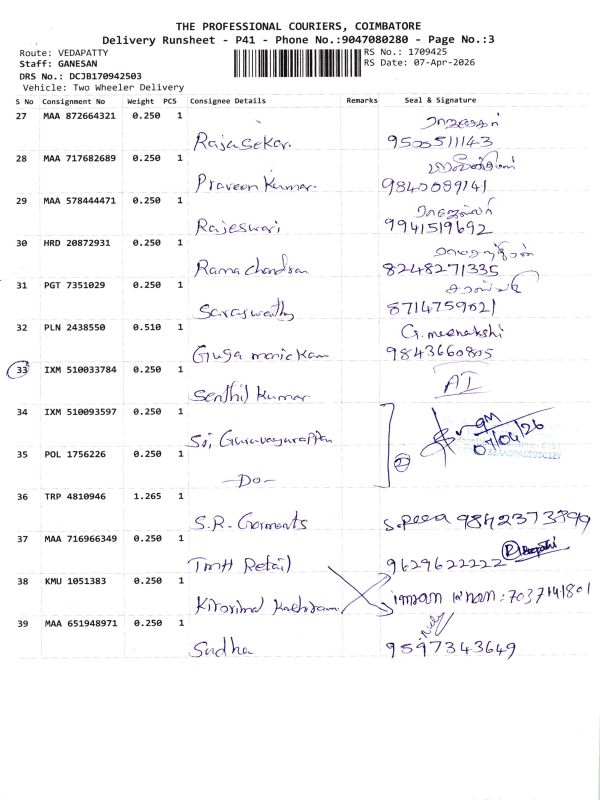 THE PROFESSIONAL COURIERS, COIMBATORE
Delivery Runsheet - P41 - Phone No.:9047080280 - Page No.:3
Route: VEDAPATTY
RS No.: 1709425
Staff: GANESAN
RS Date: 07-Apr-2026
DRS No.: DCJB170942503
Vehicle: Two Wheeler Delivery
S No Consignment No Weight PCS Consignee Details Remarks Seal & Signature
27 MAA 872664321 0.250 1
Rajasekar. 9500511143
28 MAA 717682689 0.250 1
Praveen Kumar. 9840089141
29 MAA 578444471 0.250 1
Rajeswari 9941519692
30 HRD 20872931 0.250 1
Ramachandran 8248271335
31 PGT 7351029 0.250 1
Saraswathy 8714759021
32 PLN 2438550 0.510 1 G. meenakshi
Guga manickam 9843660805
33 IXM 510033784 0.250 1
Senthil Kumar. AI
34 IXM 510093597 0.250 1
Sri Guruvayurappan 07/04/26
35 POL 1756226 0.250 1
-Do- 2
36 TRP 4810946 1.265 1
S.R. Garments
37 MAA 716966349 0.250 1
TMH Retail 9629622222
38 KMU 1051383 0.250 1
imran khan: 7037141801
39 MAA 651948971 0.250 1
Sudha 9597343649